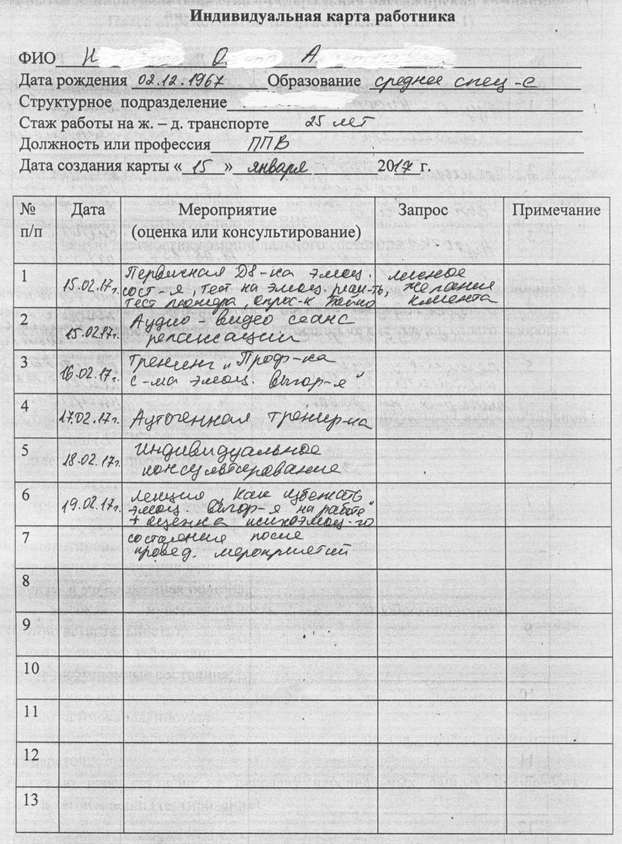 Индивидуальная карта работника
ФИО Н О А
Дата рождения 02.12.1967 Образование среднее спец-е
Структурное подразделение
Стаж работы на ж. – д. транспорте 25 лет
Должность или профессия ППВ
Дата создания карты « 15 » января 2017 г.
№ п/п Дата Мероприятие (оценка или консультирование) Запрос Примечание
1 15.02.17г. Первичная DS-ка эмоц. личное
сост-я, тест на эмоц. желание
тест Леонгарда, опрос-к клиента
2 15.02.17г. Аудио-видео сеанс
релаксации
3 16.02.17г. Тренинг „Проф-ка
с-ма эмоц. выгор-я"
4 17.02.17г. Аутогенная тренир-ка
5 18.02.17г. Индивидуальное
консультирование
6 19.02.17г. лекция „Как избежать
эмоц. выгор-я на работе"
+ оценка психоэмоц-го
7 состояния после
провед. мероприятий
8
9
10
11
12
13